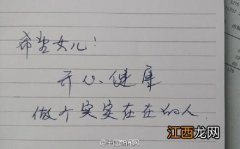 希望女儿：
开心、健康
做个实实在在的人.
江西龙网